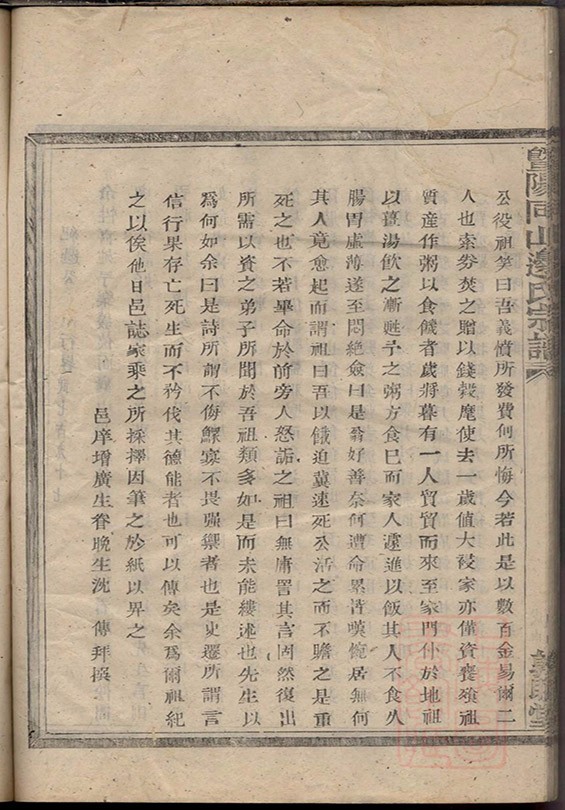 公役祖笑曰吾義憤所發費何所悔今若此是以數百金易爾二
人也索券焚之贈以錢穀麾使去一歲值大祲家亦僅資饔飧祖
質產作粥以食餓者歲將暮有一人貿貿而來至家門仆於地祖
以薑湯飲之漸甦予之粥方食已而家人遽進以飯其人不食久
腸胃虛薄遂至悶絶僉曰是翁好善奈何遭命累皆嘆惋居無何
其人竟愈起而謂祖曰吾以餓迫冀速死公活之而不贍之是重
死之也不若畢命於前旁人怒詬之祖曰無庸詈其言固然復出
所需以資之弟子所聞於吾祖類多如是而未能縷述也先生以
爲何如余曰是詩所謂不侮鰥寡不畏彊禦者也是史遷所謂言
信行果存亡死生而不矜伐其德能者也可以傳矣余爲爾祖紀
之以俟他日邑誌家乘之所採擇因筆之於紙以畀之
邑庠增廣生眷晚生沈 傳拜撰
暨陽同山邊氏宗譜